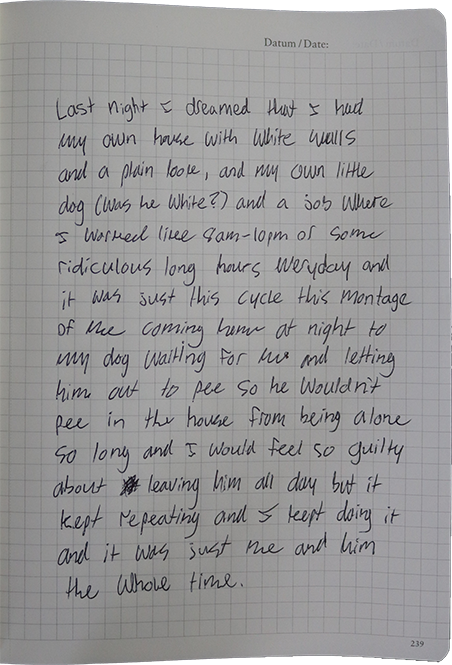 Datum / Date:
Last night I dreamed that I had
my own house with white walls
and a plain loose, and my own little
dog (was he white?) and a job where
I worked like 8am-10pm or some
ridiculous long hours everyday and
it was just this cycle this montage
of me coming home at night to
my dog waiting for me and letting
him out to pee so he wouldn't
pee in the house from being alone
so long and I would feel so guilty
about leaving him all day but it
kept repeating and I kept doing it
and it was just me and him
the whole time.
239